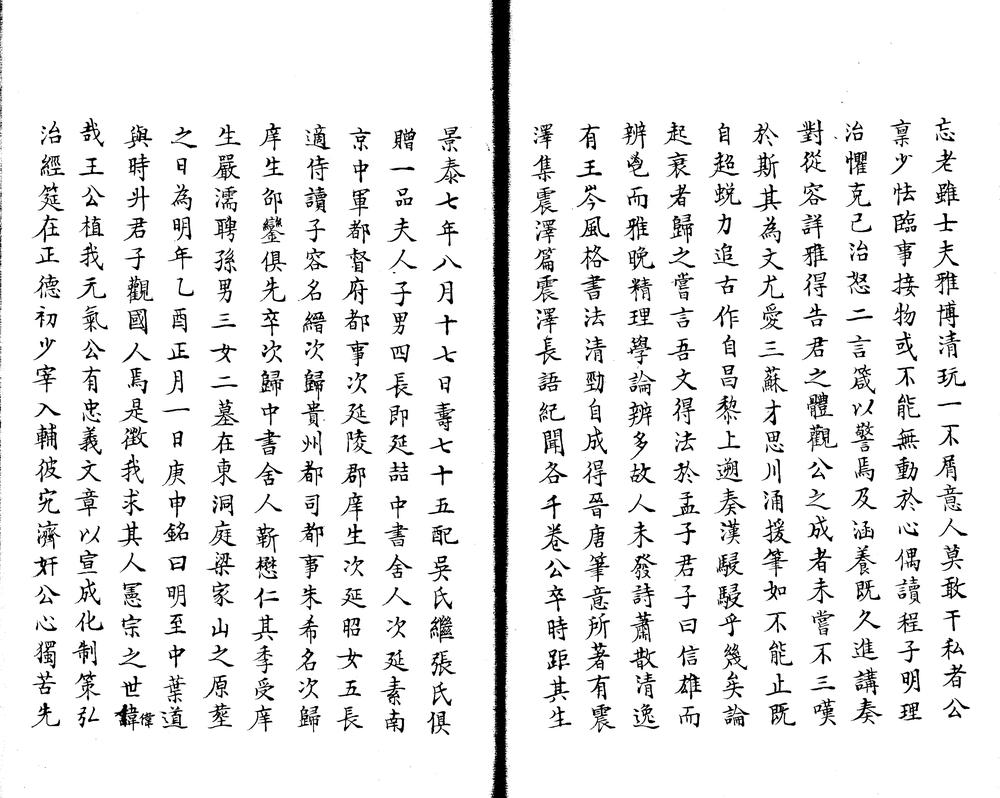 忘老雖士夫雅博清玩一不屑意人莫敢干私者公
稟少怯臨事接物或不能無動於心偶讀程子明理
治懼克己治怒二言箴以警焉及涵養既久進講奏
對從容詳雅得告君之體觀公之成者未嘗不三嘆
於斯其為文尤愛三蘇才思川涌援筆如不能止既
自超蛻力追古作自昌黎上遡秦漢駸駸乎幾矣論
起衰者歸之嘗言吾文得法於孟子君子曰信雄而
辨邕而雅晚精理學論辨多故人未發詩蕭散清逸
有王岑風格書法清勁自成得晉唐筆意所著有震
澤集震澤篇震澤長語紀聞各千卷公卒時距其生
景泰七年八月十七日壽七十五配吳氏繼張氏俱
贈一品夫人子男四長即延喆中書舍人次延素南
京中軍都督府都事次延陵郡庠生次延昭女五長
適侍讀子容名縉次歸貴州都司都事朱希名次歸
庠生邵鑾俱先卒次歸中書舍人靳懋仁其季受庠
生嚴濡聘孫男三女二墓在東洞庭梁家山之原塟
之日為明年乙酉正月一日庚申銘曰明至中葉道
與時升君子觀國人焉是徵我求其人憲宗之世偉
哉王公植我元氣公有忠義文章以宣成化制策弘
治經筵在正德初少宰入輔彼宄濟奸公心獨苦先